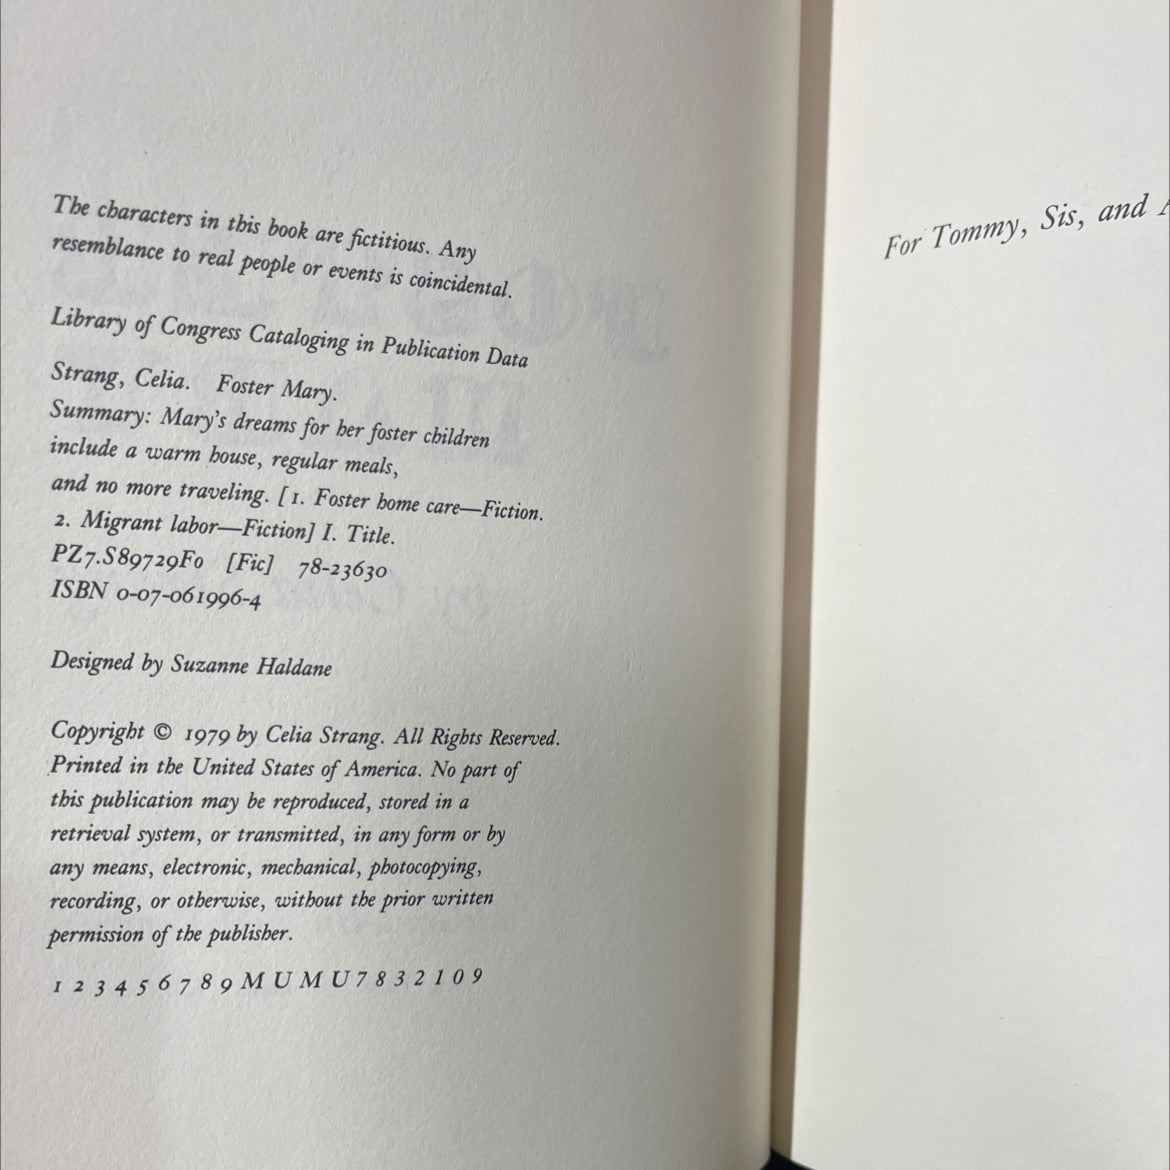 The characters in this book are fictitious. Any
resemblance to real people or events is coincidental.
Library of Congress Cataloging in Publication Data
Strang, Celia. Foster Mary.
Summary: Mary's dreams for her foster children
include a warm house, regular meals,
and no more traveling. [1. Foster home care—Fiction.
2. Migrant labor—Fiction] I. Title.
PZ7.S89729Fo [Fic] 78-23630
ISBN 0-07-061996-4
Designed by Suzanne Haldane
Copyright © 1979 by Celia Strang. All Rights Reserved.
Printed in the United States of America. No part of
this publication may be reproduced, stored in a
retrieval system, or transmitted, in any form or by
any means, electronic, mechanical, photocopying,
recording, or otherwise, without the prior written
permission of the publisher.
1 2 3 4 5 6 7 8 9 M U M U 7 8 3 2 1 0 9
For Tommy, Sis, and